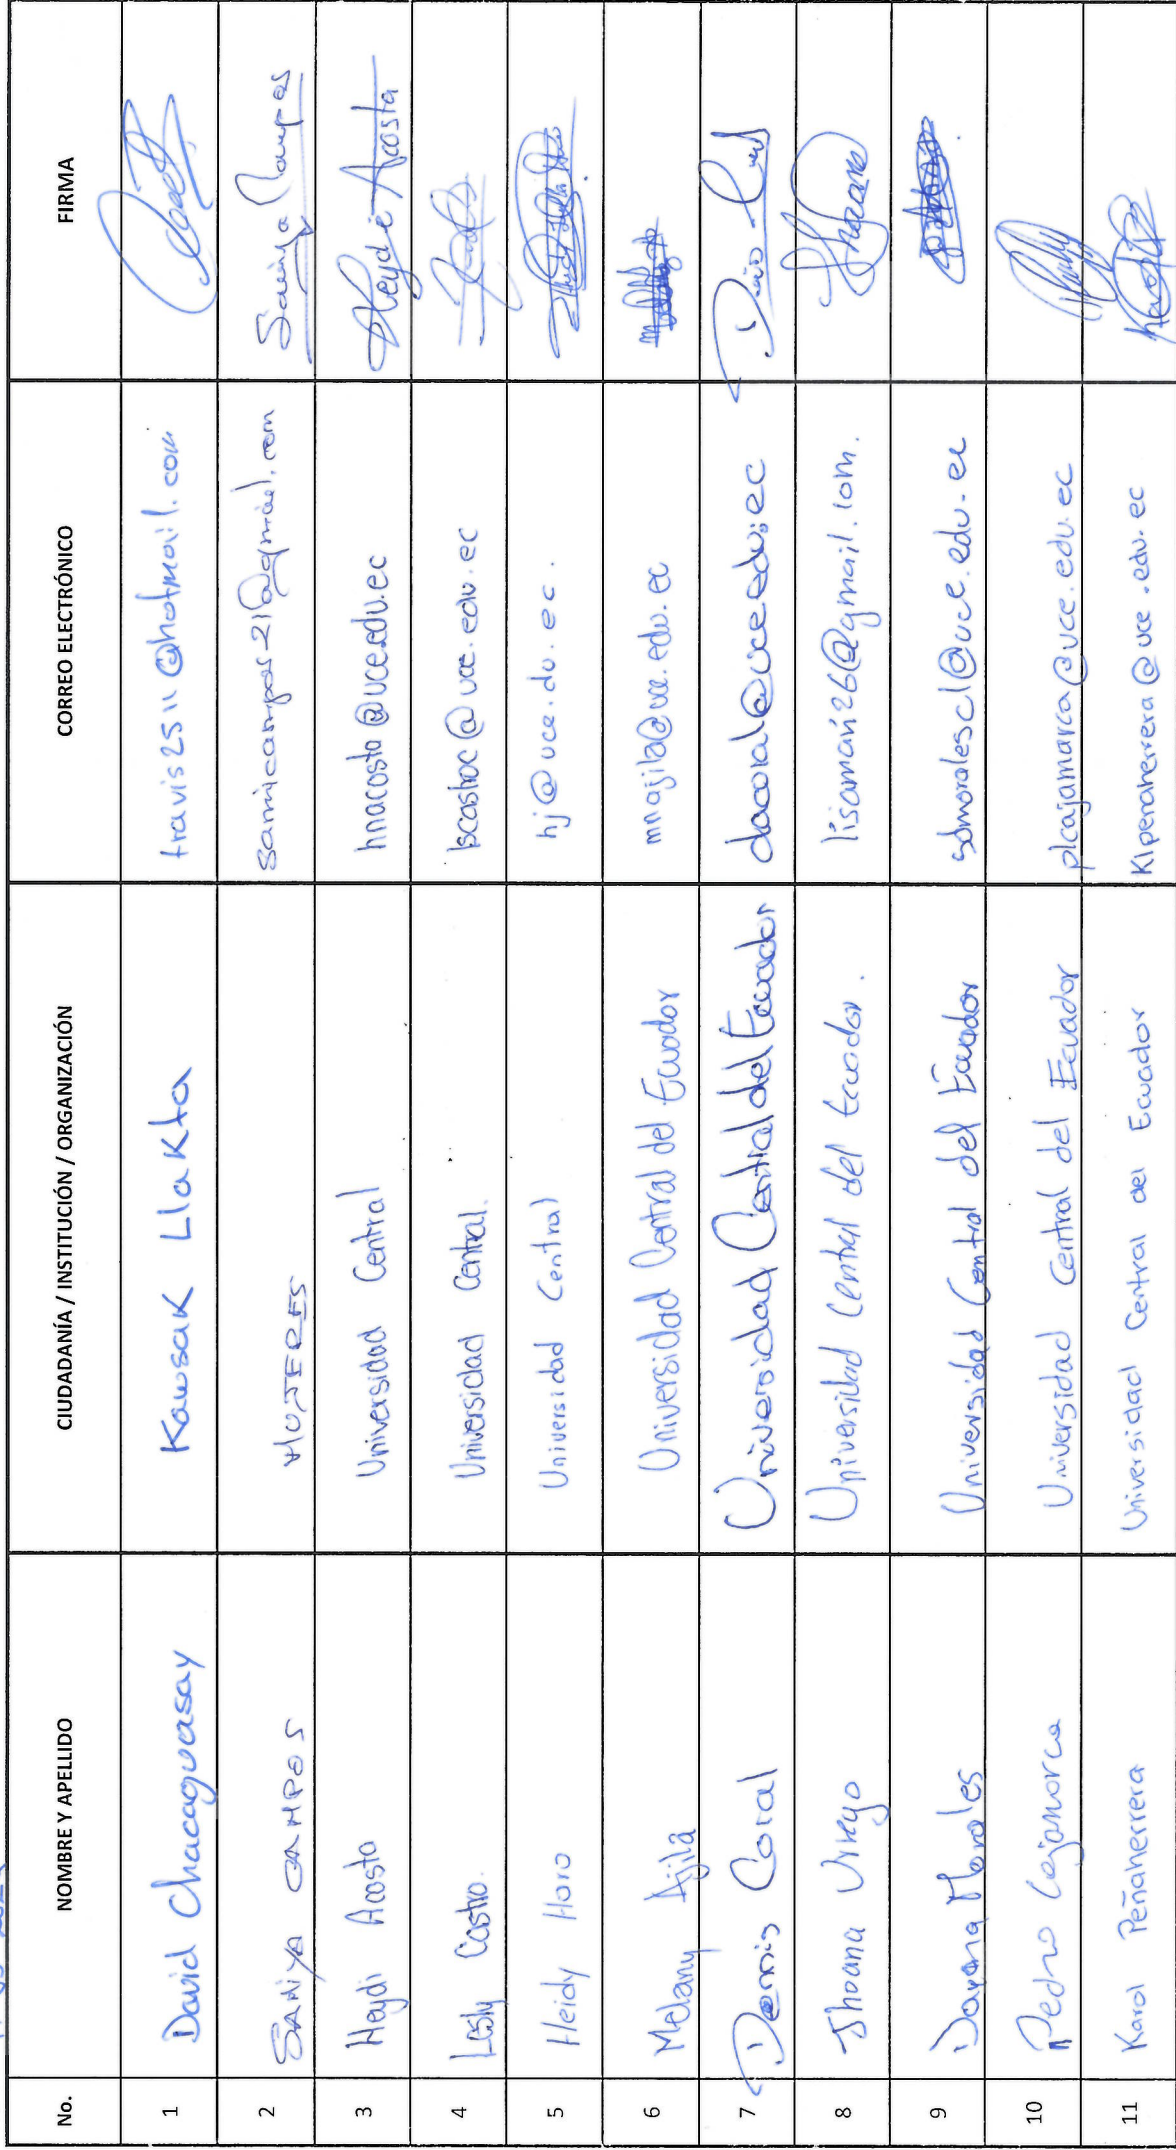 No. NOMBRE Y APELLIDO CIUDADANÍA / INSTITUCIÓN / ORGANIZACIÓN CORREO ELECTRÓNICO FIRMA
1 David Chacaguasay Kawsak Llakta travis2511@hotmail.com
2 SAMIYA CAMPOS MUJERES samicampos-21@gmail.com Samiya Campos
3 Heydi Acosta Universidad Central hnacosta@uce.edu.ec Heydi Acosta
4 Lesly Castro. Universidad Central. lscastroc@uce.edu.ec
5 Heidy Haro Universidad Central hj@uce.du.ec.
6 Melany Ajila Universidad Central del Ecuador mnajila@uce.edu.ec
7 Dennis Coral Universidad Central del Ecuador dacoral@uce.edu.ec
8 Jhoana Urrego Universidad Central del Ecuador. lisaman26@gmail.com. Jhoana
9 Dayana Morales Universidad Central del Ecuador sdmoralescl@uce.edu.ec
10 Pedro Cajamarca Universidad Central del Ecuador plcajamarca@uce.edu.ec
11 Karol Peñaherrera Universidad Central del Ecuador Klpenaherrera@uce.edu.ec